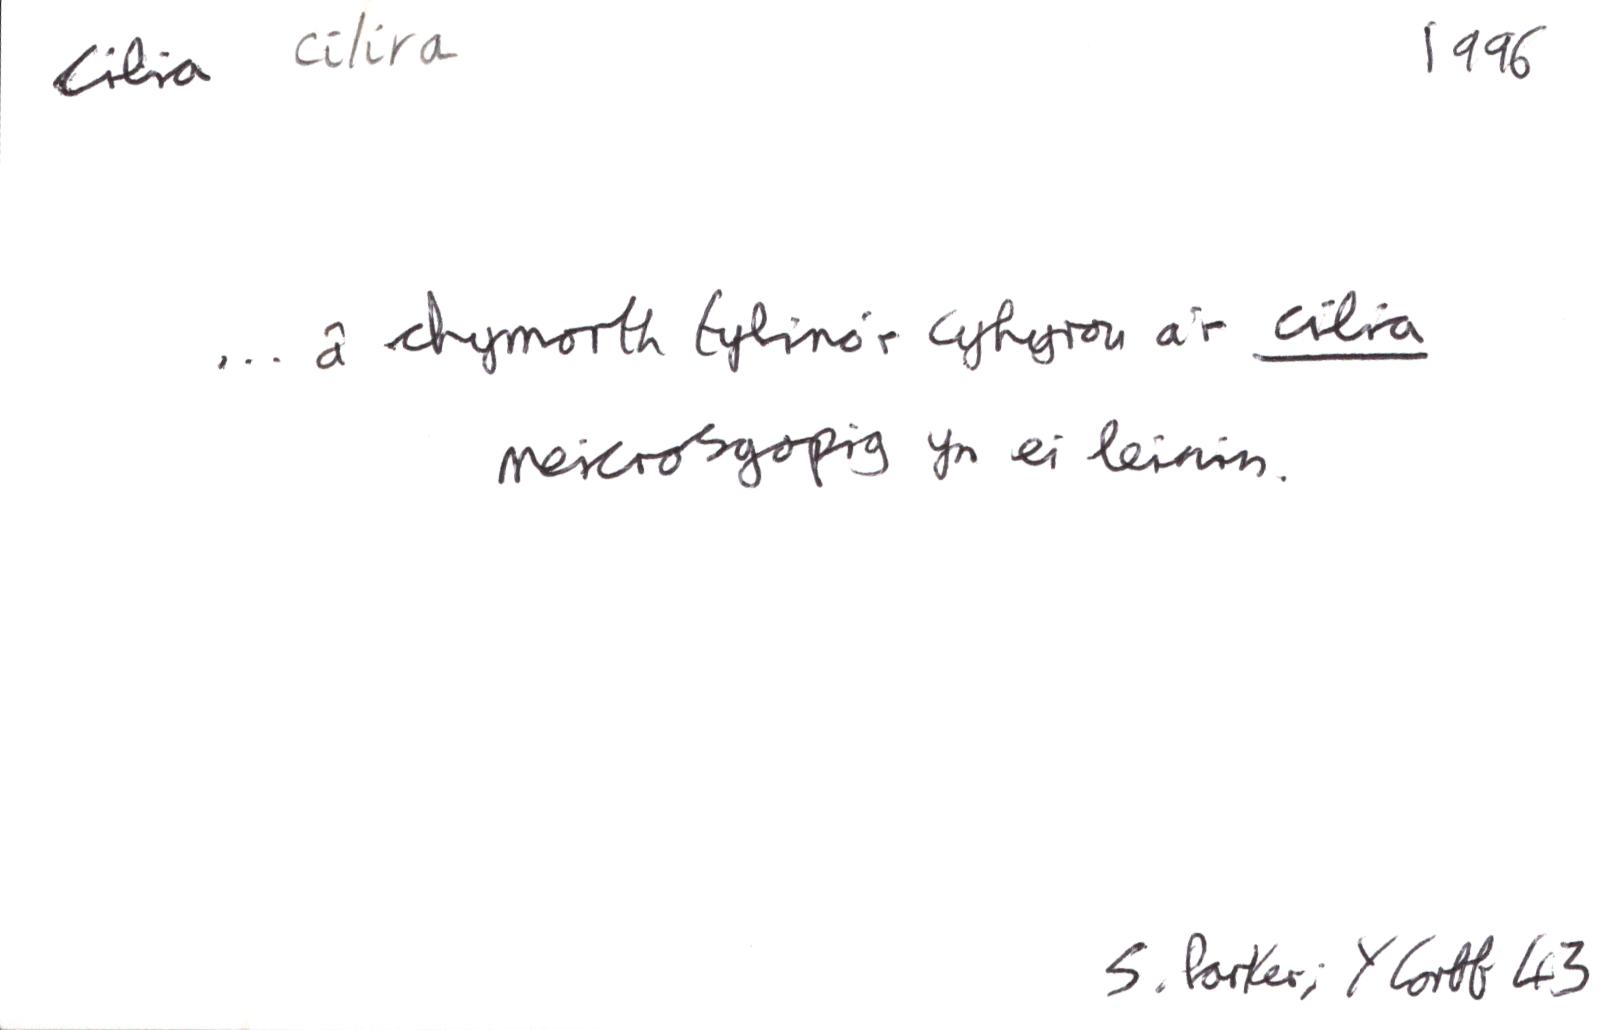 cilia cilia 1996
... â chymorth tylino'r cyhyrau a'r cilia
meicrosgopig yn ei leinin.
S. Parker; Y Corff 43